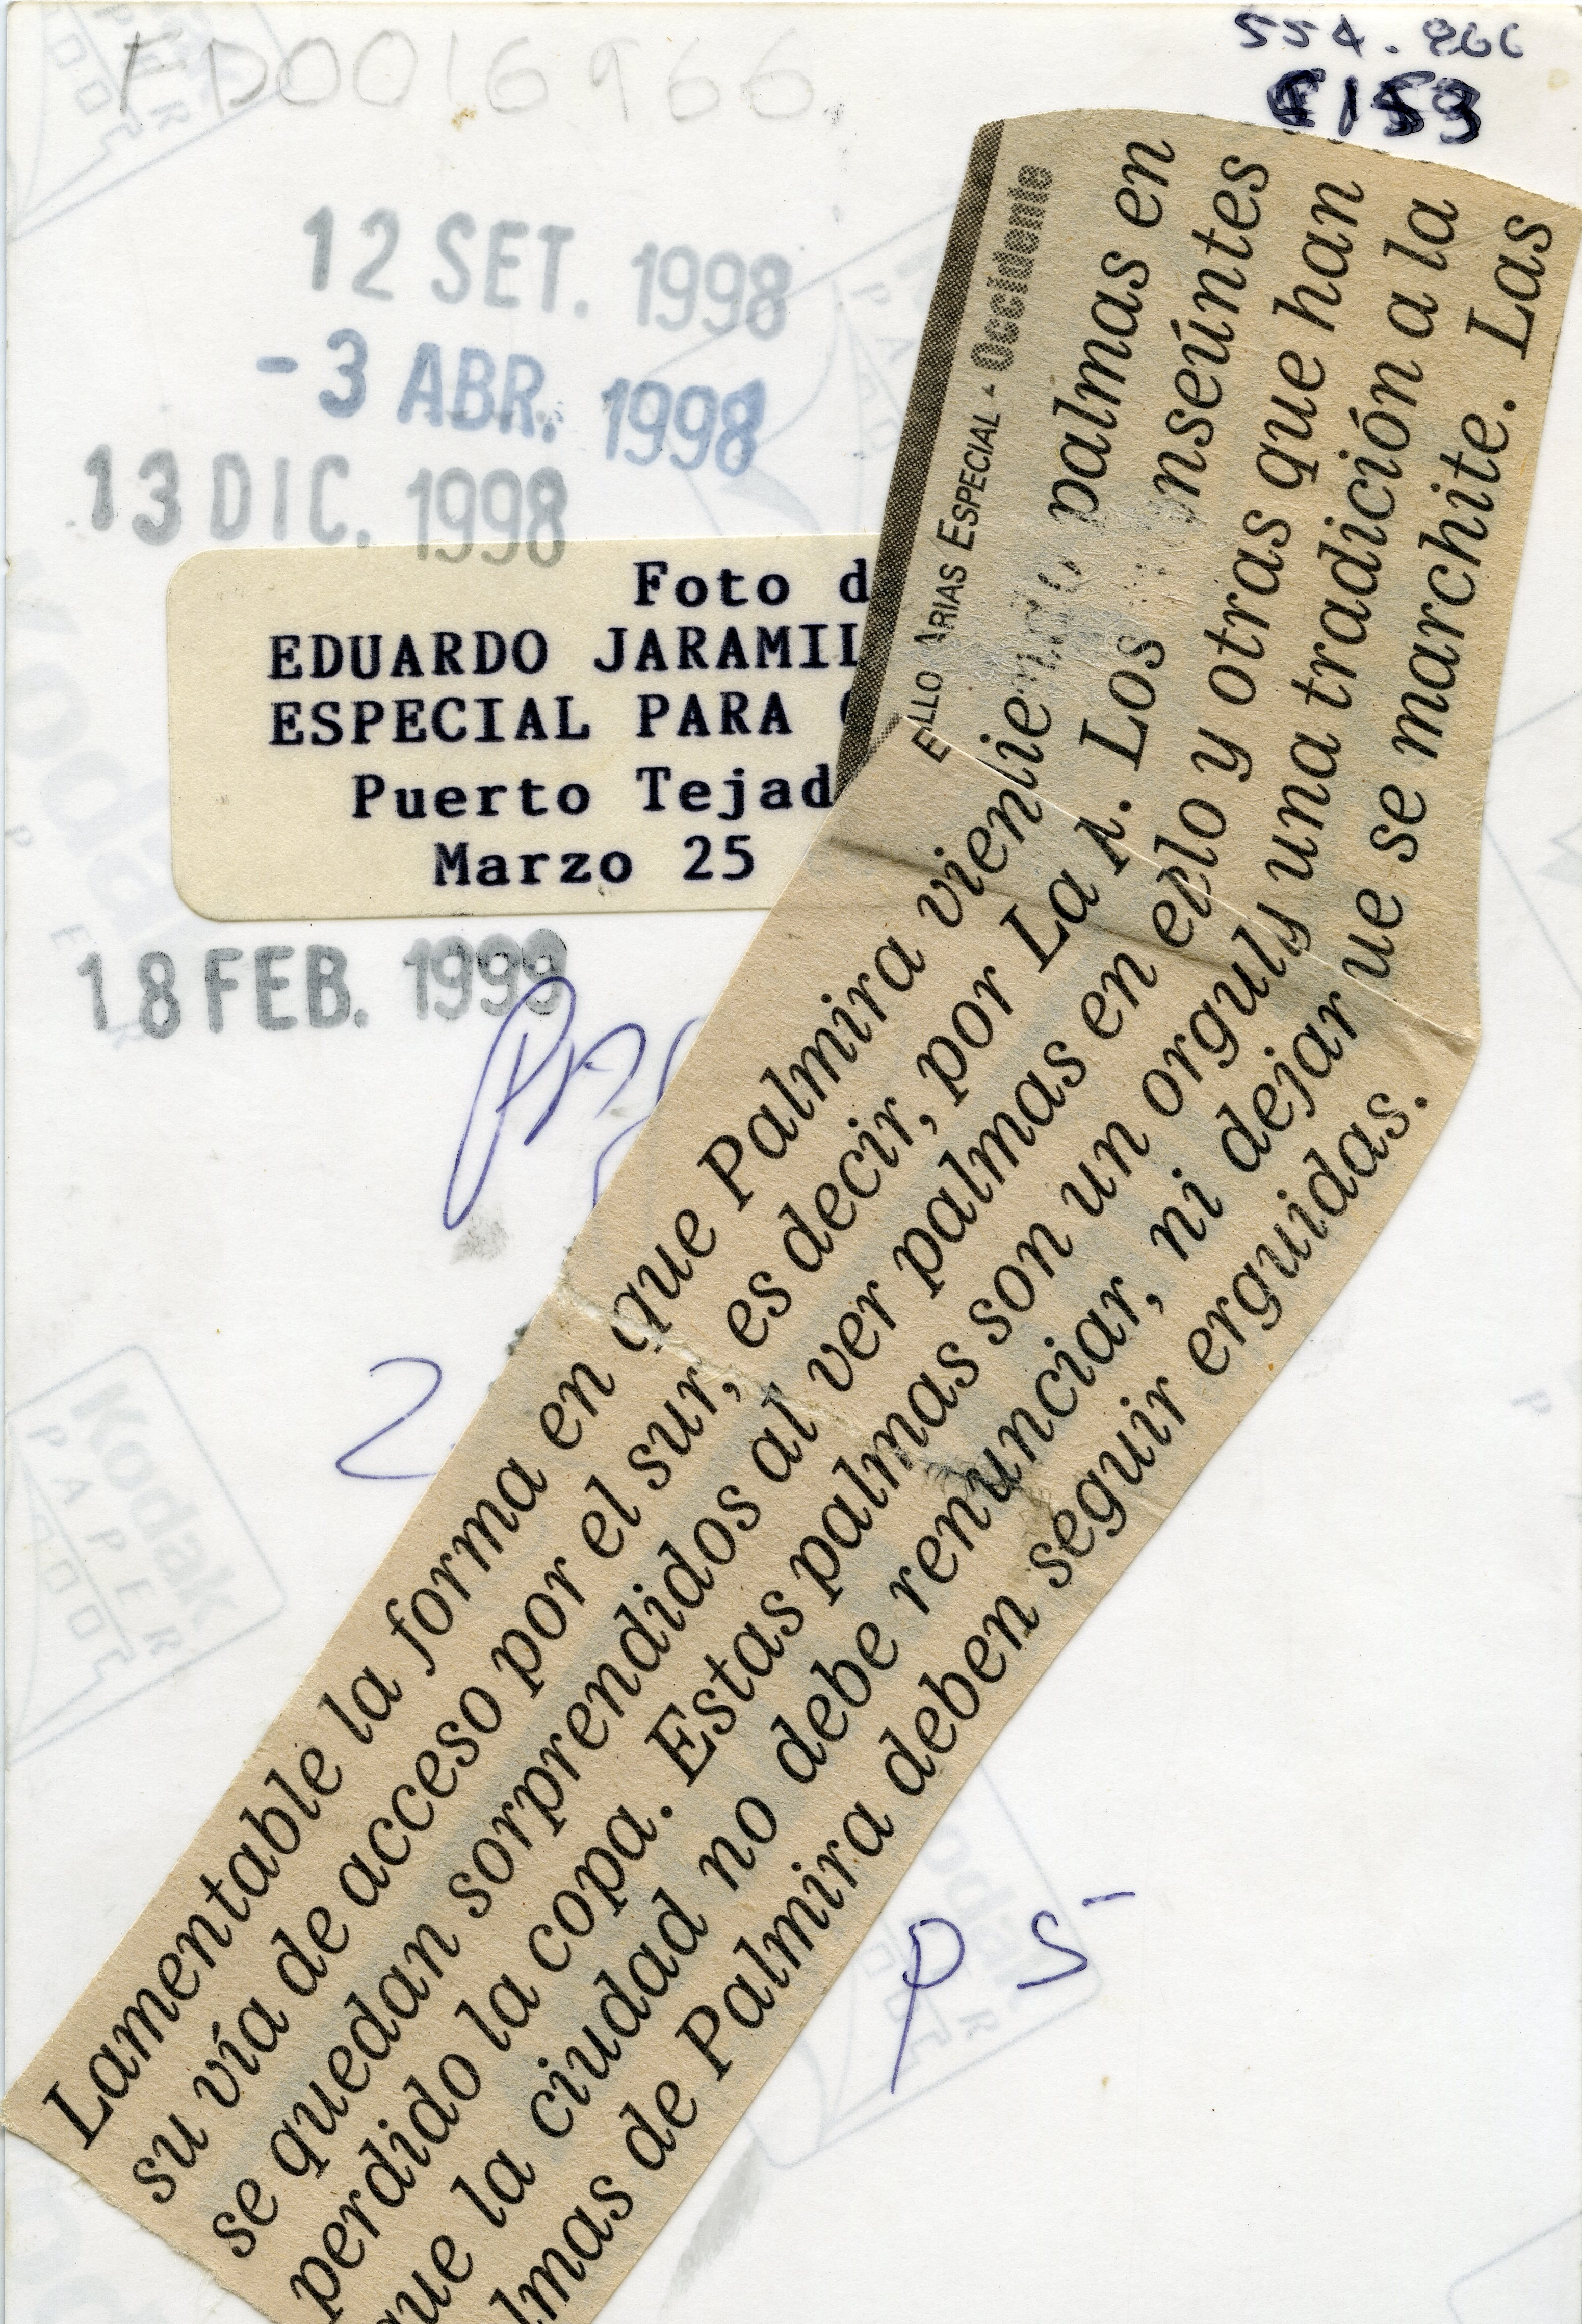 FD0016966.
12 SET. 1998
-3 ABR. 1998
13 DIC. 1998
Foto d
EDUARDO JARAMIL
ESPECIAL PARA
Puerto Tejad
Marzo 25
18 FEB. 1999
2
P 5
ARIAS ESPECIAL - Occidente
Lamentable la forma en que Palmira palmas en
su vía de acceso por el sur, es decir, por La Los nseúntes
se quedan sorprendidos al ver palmas en lo y otras que han
perdido la copa. Estas palmas son un orgul y una tradición a la
que la ciudad no debe renunciar, ni dejar ue se marchite. Las
lmas de Palmira deben seguir erguidas.
Kodak
PAPER